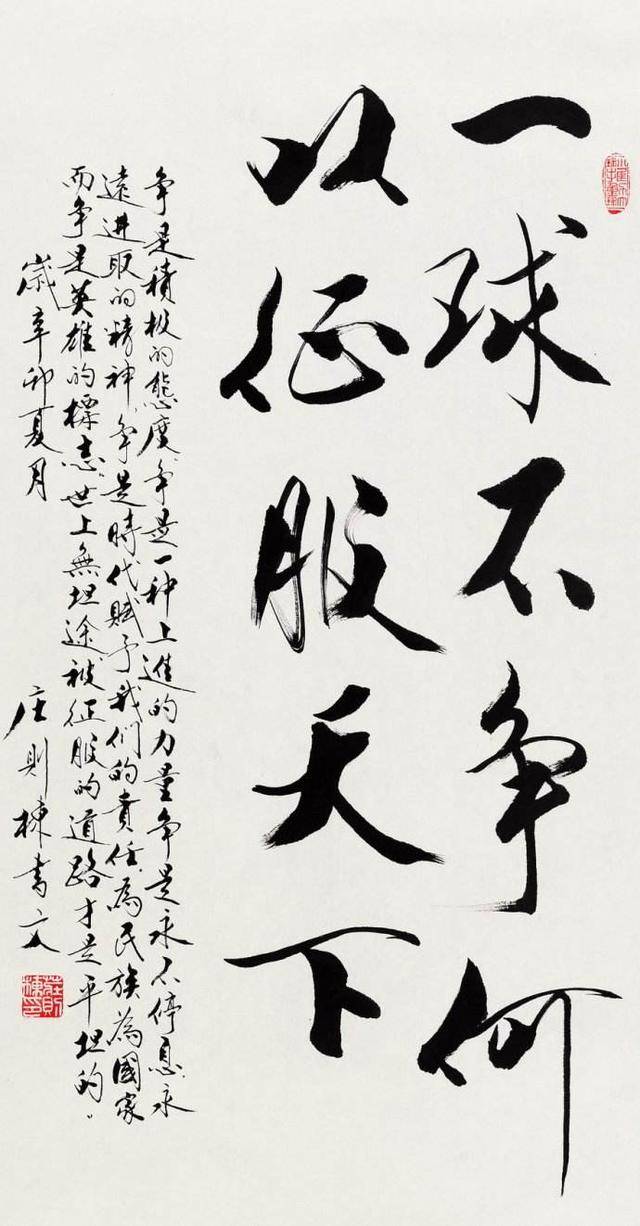 一球不争何
以征服天下
争是積极的態度争是一种上進的力量争是永不停息永
遠進取的精神争是時代賦予我们的責任為民族為國家
而争是英雄的標志世上無坦途被征服的道路才是平坦的
歲辛卯夏月
庄則棟書文
莊則棟印